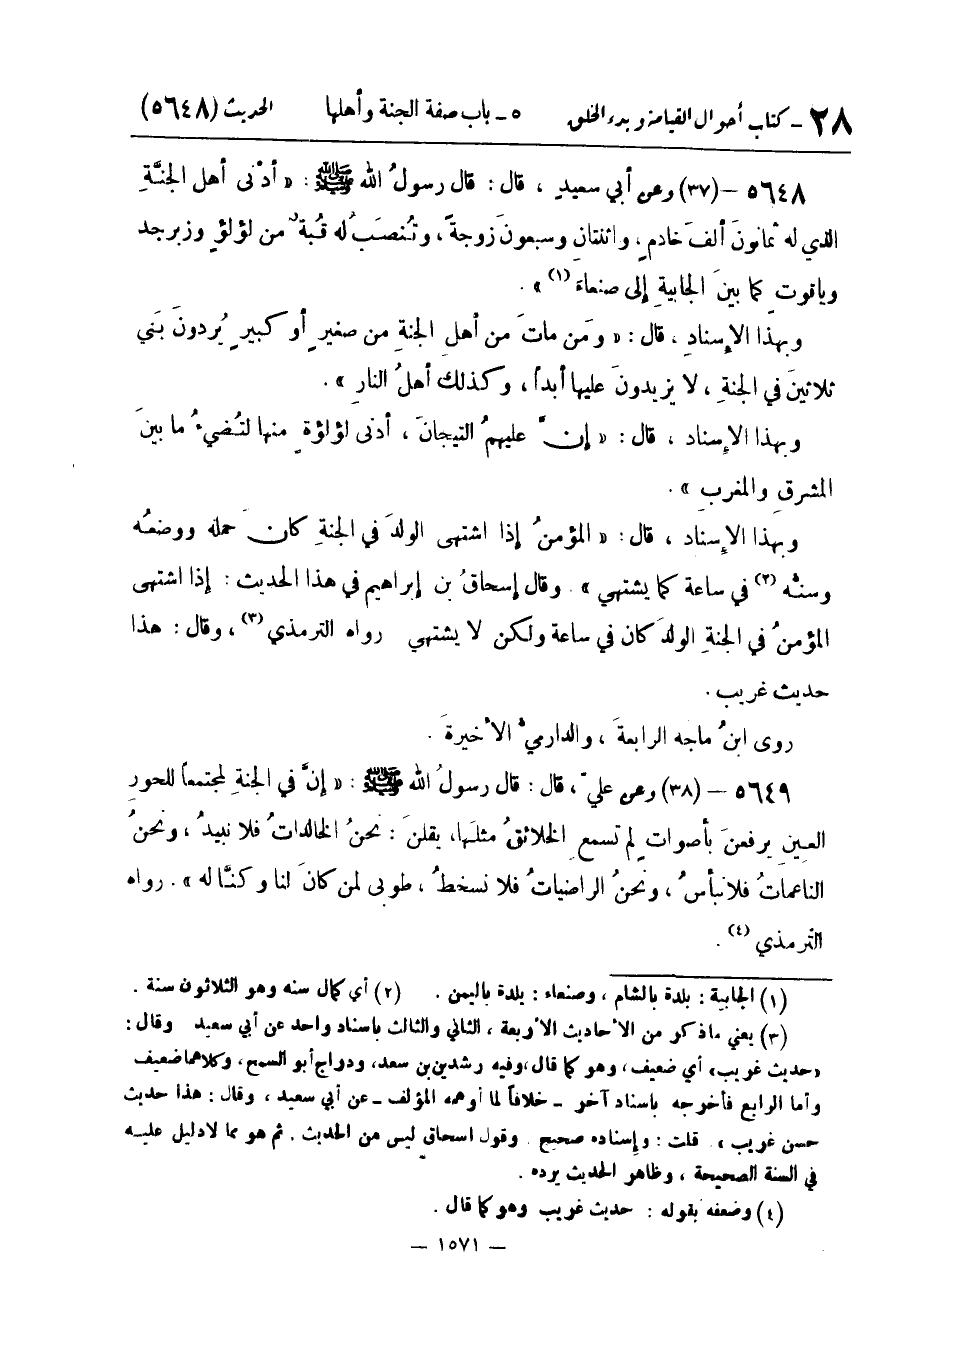 ٢٨ - كتاب أحوال القيامة وبدء الخلق ٥ - باب صفة الجنة وأهلها الحديث (٥٦٤٨)
٥٦٤٨ - (٣٧) وعن أبي سعيدٍ ، قال : قال رسولُ الله ﷺ : « أدْنى أهل الجنَّةِ
الذي له ثمانونَ ألفَ خادمٍ ، واثنتانِ وسبعونَ زوجةً ، وتُنصَبُ له قُبةٌ من لؤلؤٍ وزبرجد
وياقوتٍ كما بينَ الجابيةِ إلى صنعاءَ (١) » .
وبهذا الإسنادِ ، قال : « ومَن ماتَ من أهلِ الجنةِ من صغيرٍ أو كبيرٍ يُردونَ بَني
ثلاثينَ في الجنةِ ، لا يزيدونَ عليها أبداً ، وكذلك أهلُ النارِ » .
وبهذا الإسناد ، قال : « إنَّ عليهمُ التيجانَ ، أدنى لؤلؤةٍ منها لتُضيءُ ما بينَ
المشرقِ والمغربِ » .
وبهذا الإسناد ، قال : « المؤمنُ إذا اشتهى الولدَ في الجنةِ كانَ حمله ووضعُه
وسنُّه (٢) في ساعة كما يشتهي » . وقال إسحاقُ بن إبراهيم في هذا الحديث : إذا اشتهى
المؤمنُ في الجنةِ الولدَ كان في ساعة ولكن لا يشتهي رواه الترمذي (٣) ، وقال : هذا
حديث غريب .
روى ابنُ ماجَه الرابعةَ ، والدارميُّ الأخيرةَ .
٥٦٤٩ - (٣٨) وعن عليّ ، قال : قال رسولُ الله ﷺ : « إنَّ في الجنةِ لمجتمعاً للحورِ
العينِ يرفعنَ بأصواتٍ لم تسمعِ الخلائقُ مثلَها، يقلنَ : نحنُ الخالداتُ فلا نبيدُ ، ونحنُ
الناعماتُ فلا نبأسُ ، ونحنُ الراضياتُ فلا نسخطُ ، طوبى لمن كانَ لنا وكنَّا له » . رواه
الترمذي (٤) .
(١) الجابية : بلدة بالشام ، وصنعاء : بلدة باليمن . (٢) أي كمال سنه وهو الثلاثون سنة .
(٣) يعني ماذكر من الأحاديث الأربعة ، الثاني والثالث باسناد واحد عن أبي سعيد وقال :
«حديث غريب» أي ضعيف ، وهو كما قال ،وفيه رشدين بن سعد، ودراج أبو السمح، وكلاهما ضعيف
وأما الرابع فأخرجه باسناد آخر - خلافاً لما أوهمه المؤلف - عن أبي سعيد ، وقال : هذا حديث
حسن غريب ، . قلت : وإسناده صحيح . وقول اسحاق ليس من الحديث . ثم هو مما لادليل عليه
في السنة الصحيحة ، وظاهر الحديث يرده .
(٤) وضعفه بقوله : حديث غريب وهو كما قال .
– ١٥٧١ –